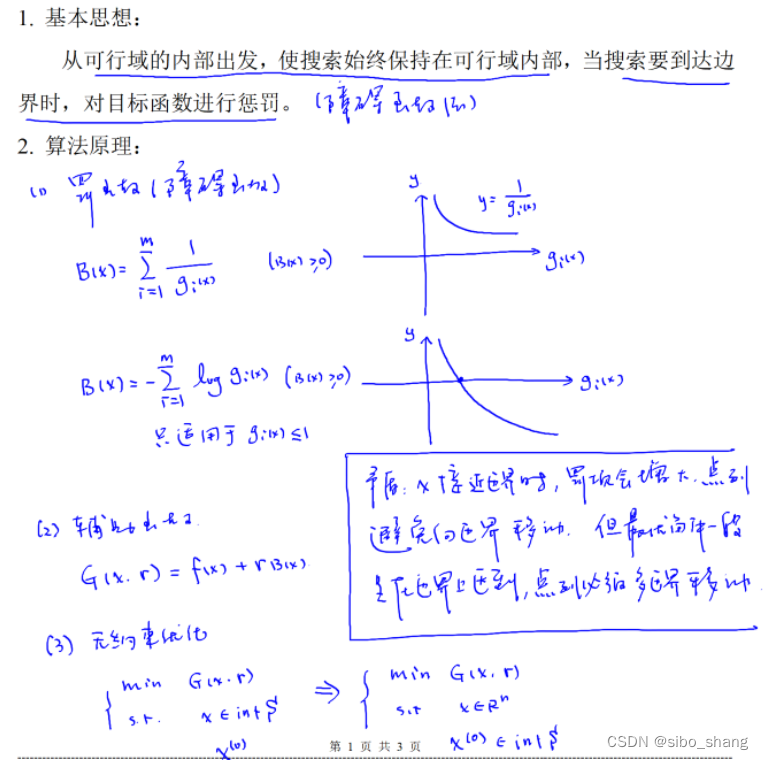 1. 基本思想：
从可行域的内部出发，使搜索始终保持在可行域内部，当搜索要到达边
界时，对目标函数进行惩罚。（障碍函数法）
2. 算法原理：
(1) 罚函数（障碍函数）
y
y = 1/gᵢ(x)
B(x) = ∑ᵢ₌₁ᵐ 1/gᵢ(x) (B(x) ≥ 0)
gᵢ(x)
y
B(x) = -∑ᵢ₌₁ᵐ log gᵢ(x) (B(x) ≥ 0)
gᵢ(x)
只适用于 gᵢ(x) ≤ 1
矛盾: x 接近边界时, 罚项会增大. 点列
避免向边界移动. 但最优解一般
是在边界上达到, 点列必须向边界移动.
(2) 辅助函数
G(x. r) = f(x) + rB(x).
(3) 无约束优化
{ min G(x. r) ⇒ { min G(x. r)
s.t. x ∈ int S s.t x∈Rⁿ
x⁽⁰⁾ x⁽⁰⁾ ∈ int S
第 1 页 共 3 页
CSDN @sibo_shang